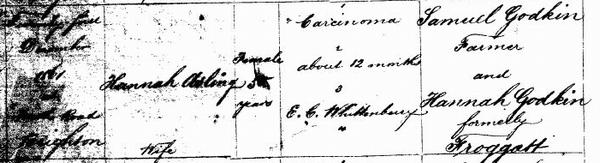 December
Hannah Asling
Wife
Female
years
" Carcinoma
"
about 12 months
3
E. C. Whittenbury
"
Samuel Godkin
Farmer
and
Hannah Godkin
formerly
Froggatt